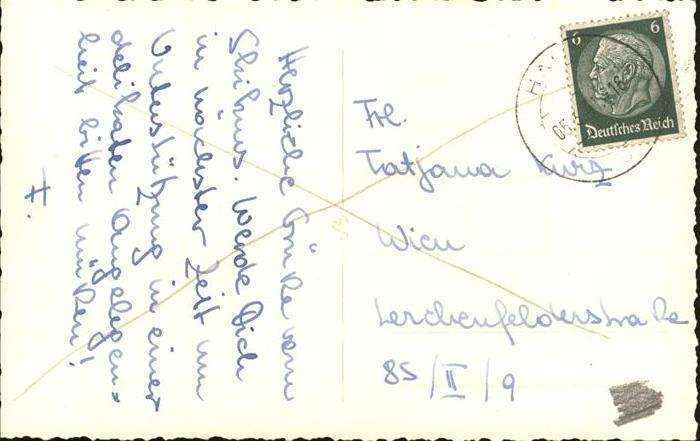 Herzliche Grüße vom
Skikurs. Werde Dich
in nächster Zeit um
Unterstützung in einer
delikaten Angelegen=
heit bitten müßen!
F.
Frl.
Tatjana Kurz
Wien
Lerchenfelderstraße
85/II/9
6 6
Deutsches Reich